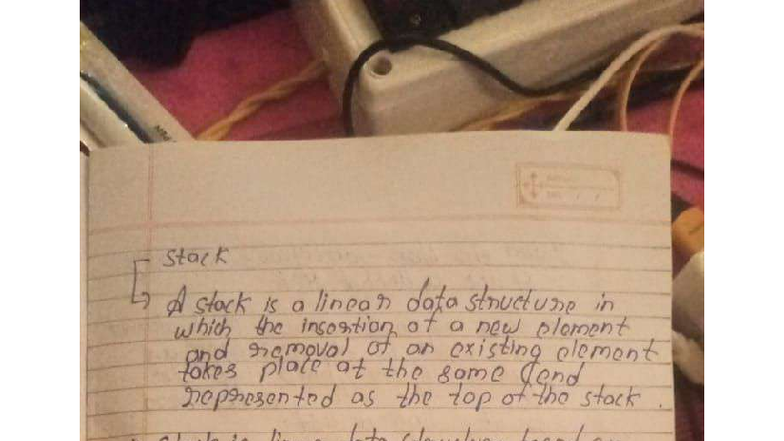 Stack
A stack is a linear data structure in
which the insertion of a new element
and removal of an existing element
takes place at the same end
represented as the top of the stack.